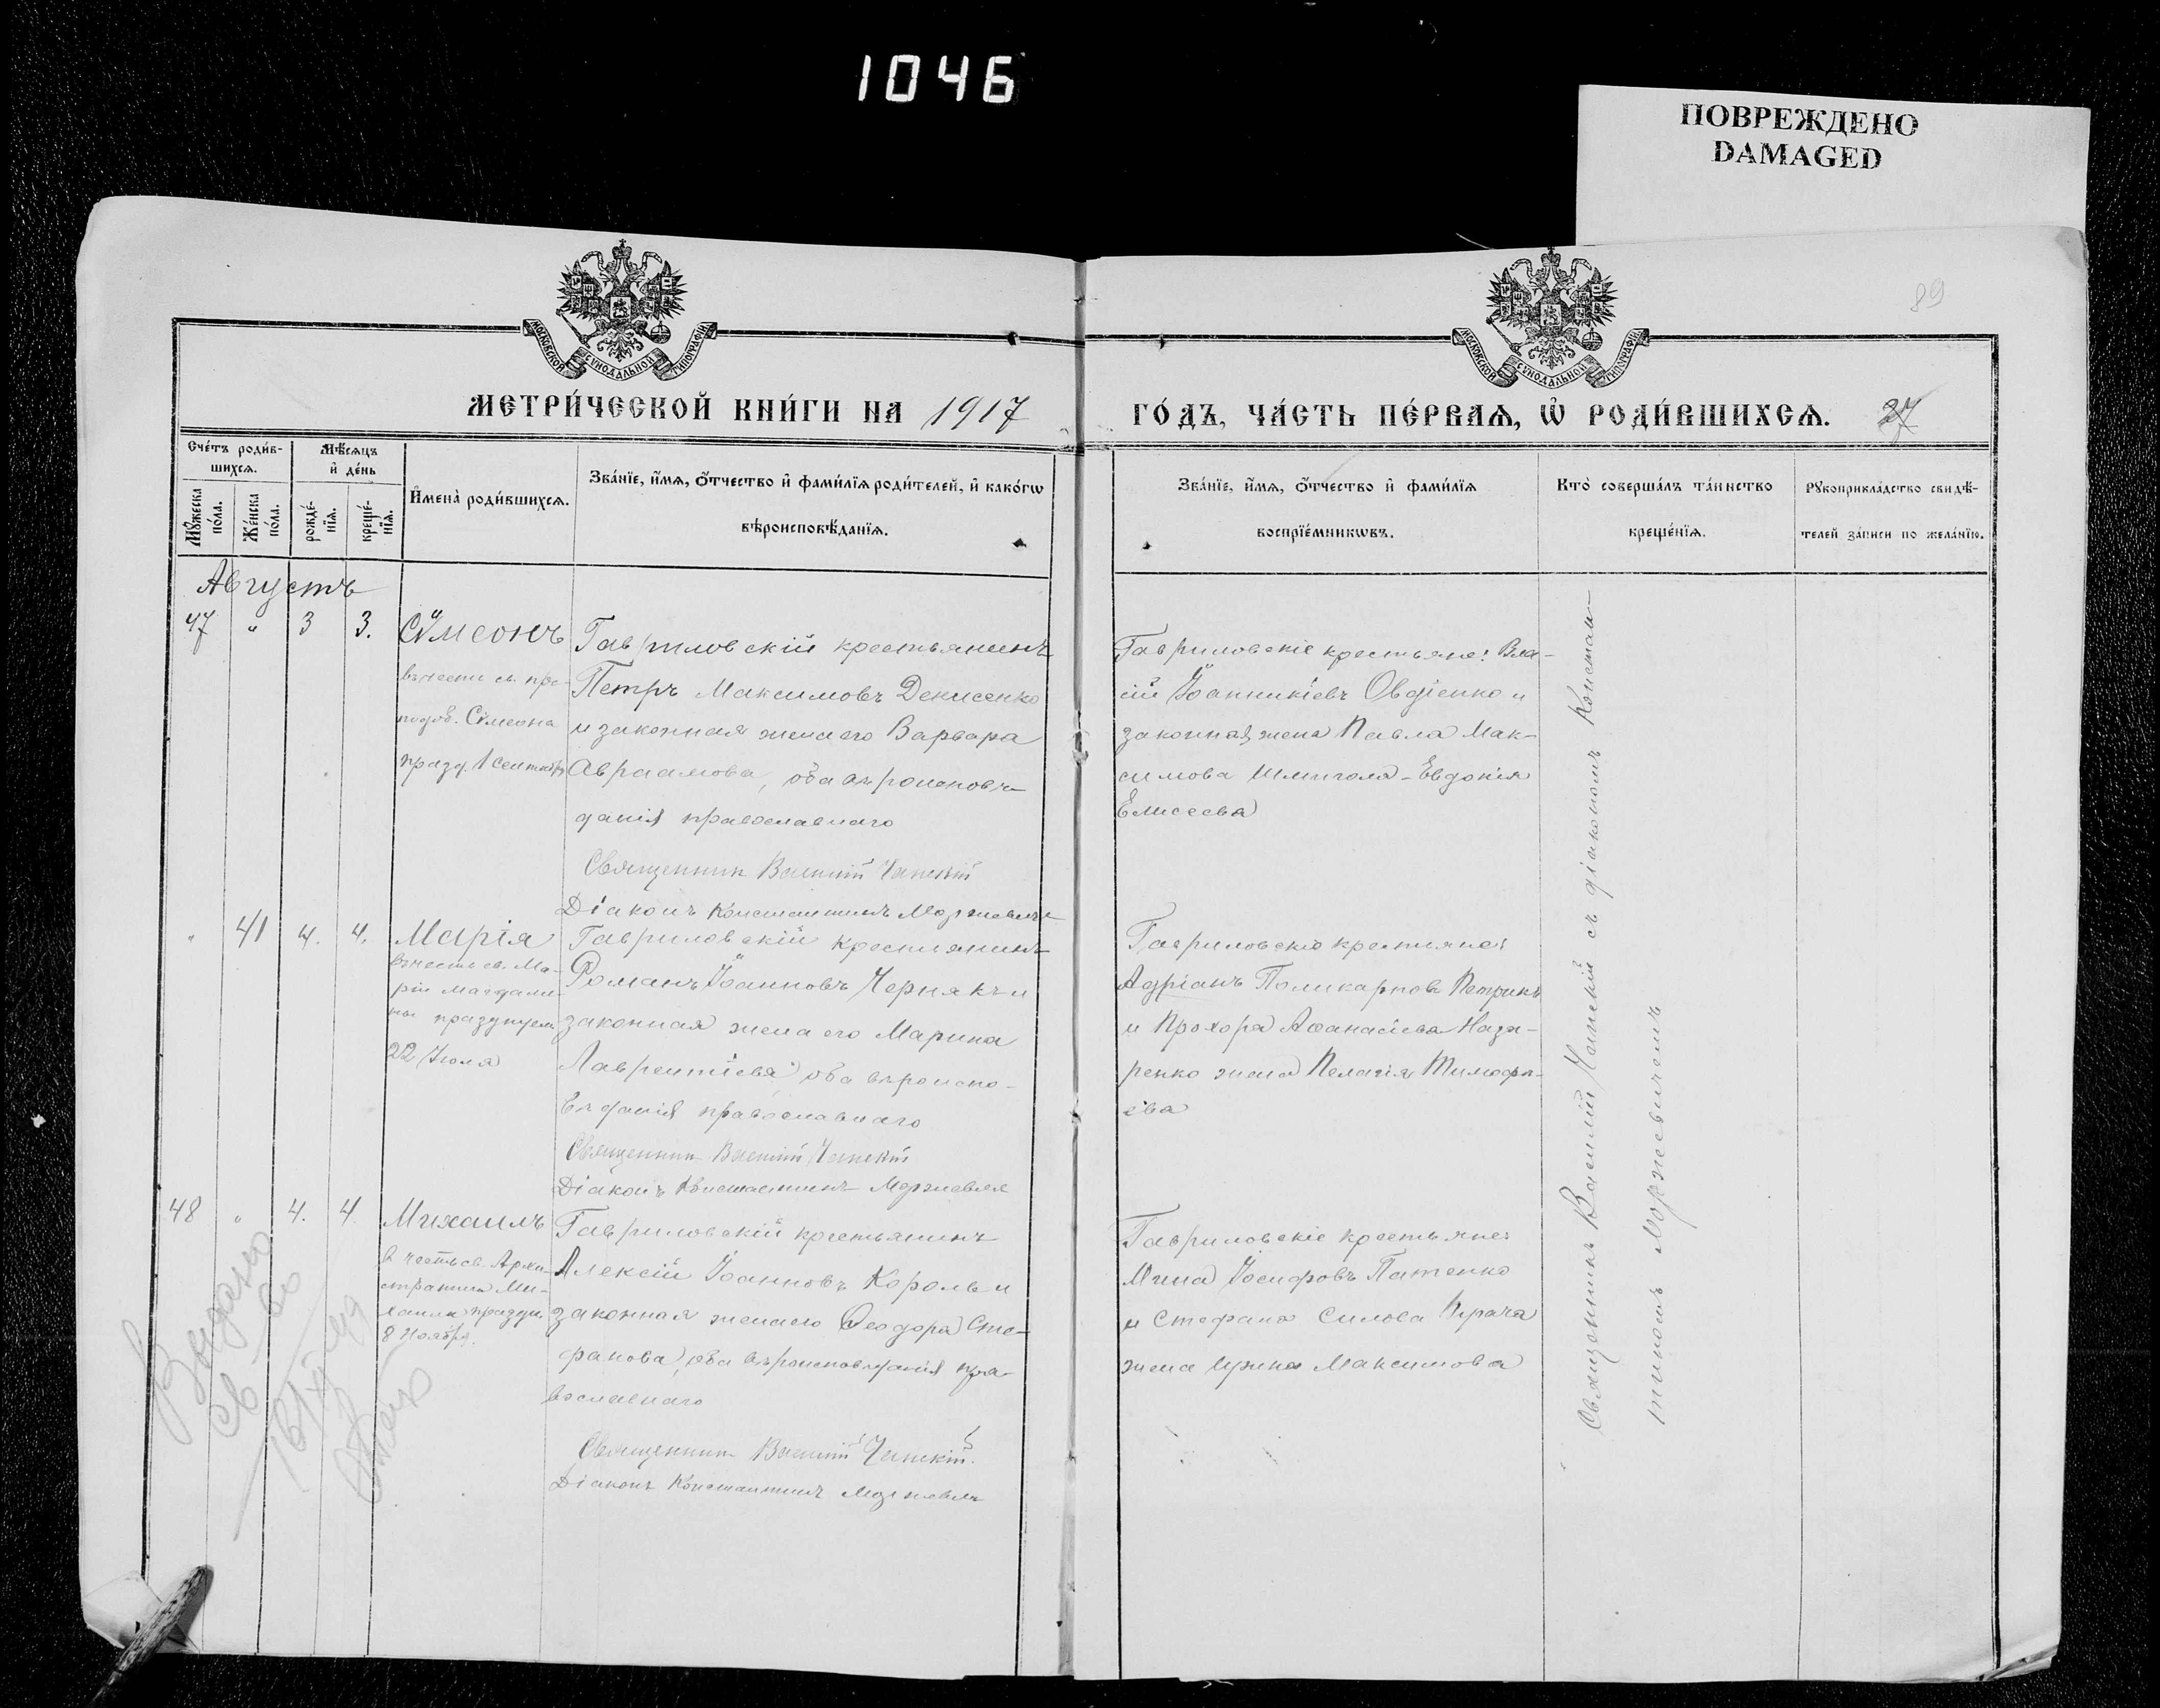 1046
ПОВРЕЖДЕНО
DAMAGED
89
МОСКОВСКОЙ СѴНОДАЛЬНОЙ ТИПОГРАФІИ
МОСКОВСКОЙ СѴНОДАЛЬНОЙ ТИПОГРАФІИ
МЕТРИ́ЧЕСКОЙ КНИ́ГИ НА 1917
ГО́ДЪ, ЧА́СТЬ ПЕ́РВАѦ, Ѡ҆ РОДИ́ВШИХСѦ. 27
Сче́тъ роди́в-
шихсѧ.
Мꙋ́жеска по́ла.
Же́нска по́ла.
Мѣ́сѧцъ
и҆ де́нь
рожде́-
нїѧ.
креще́-
нїѧ.
И҆мена̀ роди́вшихсѧ.
Зва́нїе, и҆́мѧ, ѻ҆́тчество и҆ фами́лїѧ роди́телей, и҆ како́гѡ
вѣроисповѣ́данїѧ.
Зва́нїе, и҆́мѧ, ѻ҆́тчество и҆ фами́лїѧ
воспрїе́мникѡвъ.
Кто̀ соверша́лъ та́инство
креще́нїѧ.
Рꙋкоприкла́дство свидѣ́-
телей за́писи по жела́нїю.
Августъ
47 " 3 3. Сѷмеонъ
въ чести св. пре-
подоб. Сѵмеона
празд. 1 Сентября
Гавриловскій крестьянинъ
Петръ Максимовъ Денисенко
и законная жена его Варвара
Авраамова, оба вѣроисповѣ-
данія православнаго
Священникъ Василій Чапскій
Діаконъ Константинъ Моржевичъ
Гавриловскіе крестьяне: Вла-
сій Іоанникіевъ Овдіенко и
законная жена Павла Мак-
симова Шмиголя - Евдокія
Елисеева
" 41 4. 4. Марія
въ честь св. Ма-
ріи Магдали-
ны празднуем
22 Іюля
Гавриловскій крестьянинъ
Романъ Іоанновъ Чернякъ и
законная жена его Марина
Лаврентіева, оба вѣроиспо-
вѣданія православнаго
Священникъ Василій Чапскій
Діаконъ Константинъ Моржевич
Гавриловскіе крестьяне:
Адріанъ Поликарповъ Петрикъ
и Прохора Аѳанасіева Наза-
ренко жена Пелагія Тимофе-
ева
48 " 4. 4 Михаилъ
в честь св. Архи-
стратига Ми-
хаила праздн.
8 Ноября.
Гавриловскій крестьянинъ
Алексій Іоанновъ Король и
законная жена его Ѳеодора Сте-
фанова, оба вѣроисповѣданія пра-
вославнаго
Священникъ Василій Чапскій.
Діаконъ Константинъ Моржевичъ
Гавриловскіе крестьяне:
Мина Іосифовъ Патенко
и Стефана Силова
жена Ирина Максимова
Священникъ Василій Чапскій съ діакономъ Констан-
тиномъ Моржевичемъ
Выдано